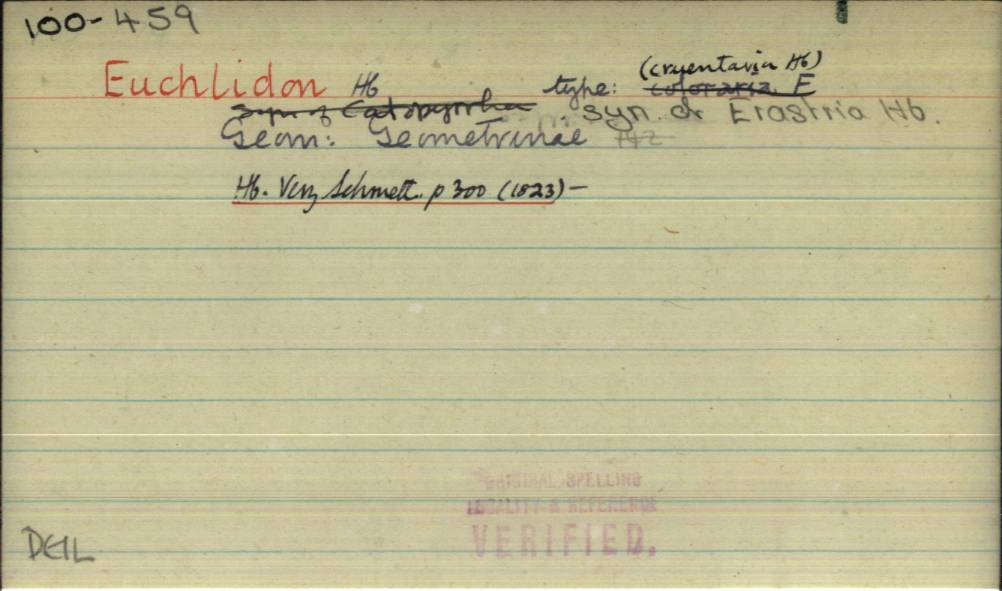 100-459
(cruentaria Hb)
Euchlidon Hb type: coloraria F
Syn of Catopyrrha . syn. of Erastria Hb.
Geom: Geometrinae
Hb. Verz Schmett. p 300 (1823) —
ORIGINAL SPELLING
LOCALITY & REFERENCE
VERIFIED.